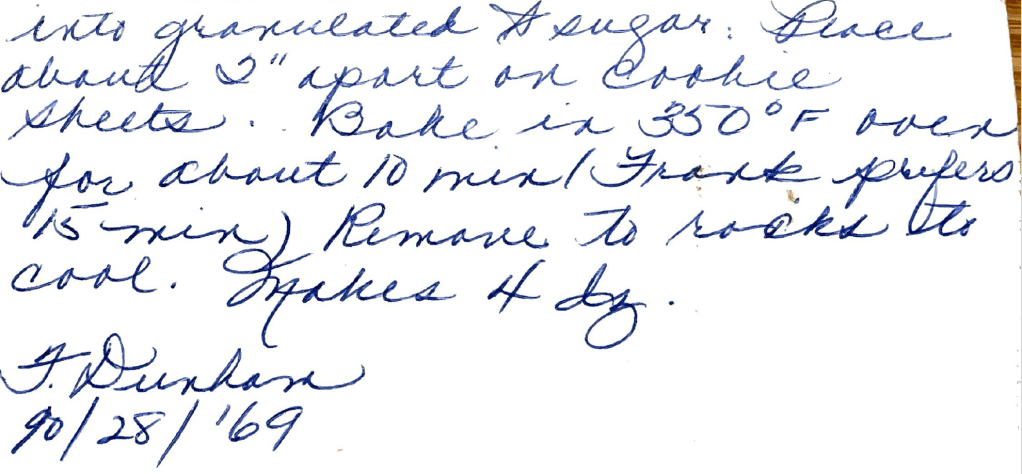 into granulated sugar. Place
about 2" apart on cookie
sheets. Bake in 350°F oven
for about 10 min (Frank prefers
15 min) Remove to racks to
cool. Makes 4 dz.
F. Dunham
10/28/'69